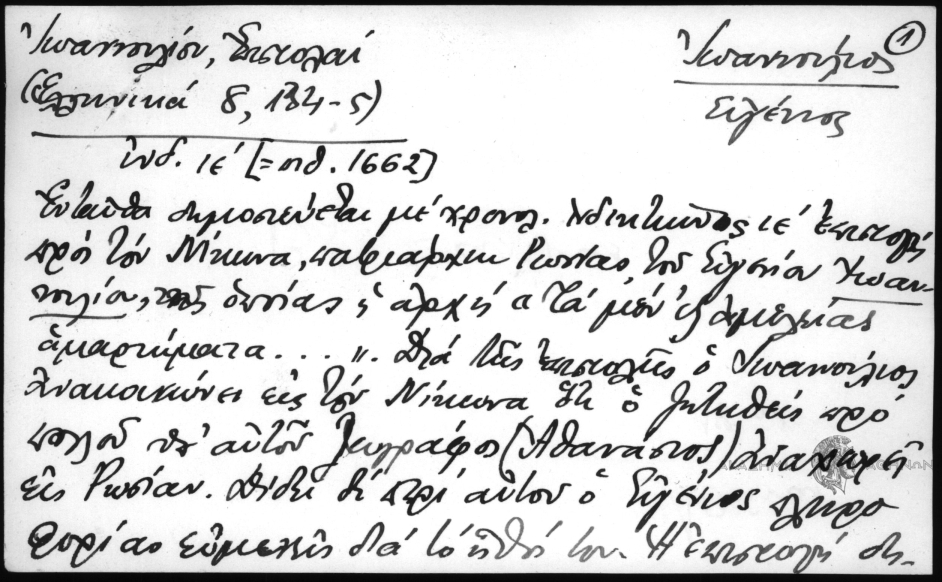 Ἰωαννουλίου, Ἐπιστολαί
(Ἑλληνικά 8, 134-5)
Ἰωαννούλιος
1
Εὐγένιος
ἰνδ. ιε' [= ἰνδ. 1662]
Ἐνταῦθα δημοσιεύεται μέ χρονολ. ἰνδικτιῶνος ιε' ἐπιστολή
πρός τόν Νίκωνα, πατριάρχην Ρωσσίας, τοῦ Εὐγενίου Ἰωαν-
νουλίου, τῆς ὁποίας ἡ ἀρχή « Τά μέν ἐξ ἀμελείας
ἁμαρτήματα . . . ». Διά τῆς ἐπιστολῆς ὁ Ἰωαννούλιος
ἀνακοινώνει εἰς τόν Νίκωνα ὅτι ὁ ζητηθείς πρό
πολλοῦ ὑπ' αὐτοῦ ζωγράφος (Ἀθανάσιος) ἀναχωρεῖ
εἰς Ρωσίαν. Δίδει δέ περί αὐτοῦ ὁ Εὐγένιος πληρο
φορίας εὐμενεῖς διά τό ἦθός του. Ἡ ἐπιστολή δη-